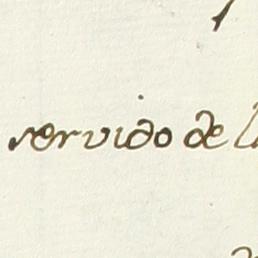 servido de